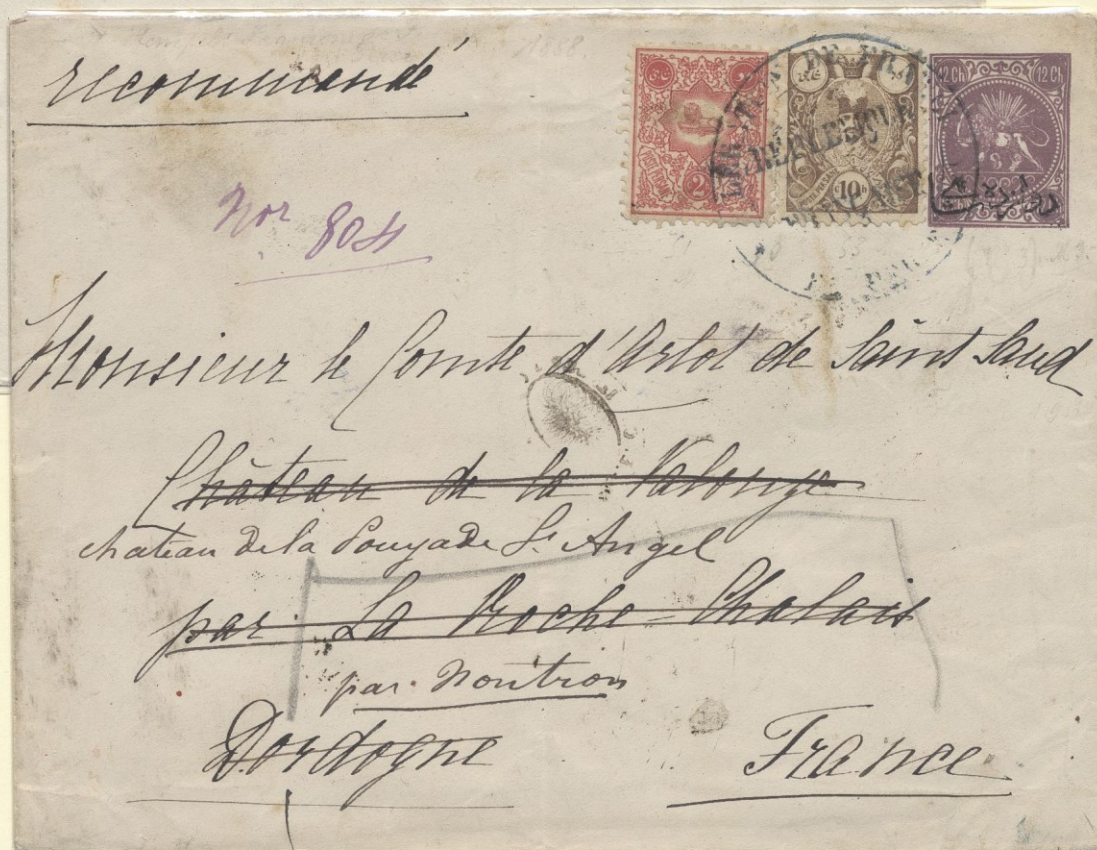 1888.
recommandé
12 Ch 12 Ch
2 2
10
Nor 804
Monsieur le Comte d'Arlot de Saint Saud
Château de la Valouze
chateau de la Pouyade St Angel
par La Roche-Chalais
par Nontron
Dordogne France